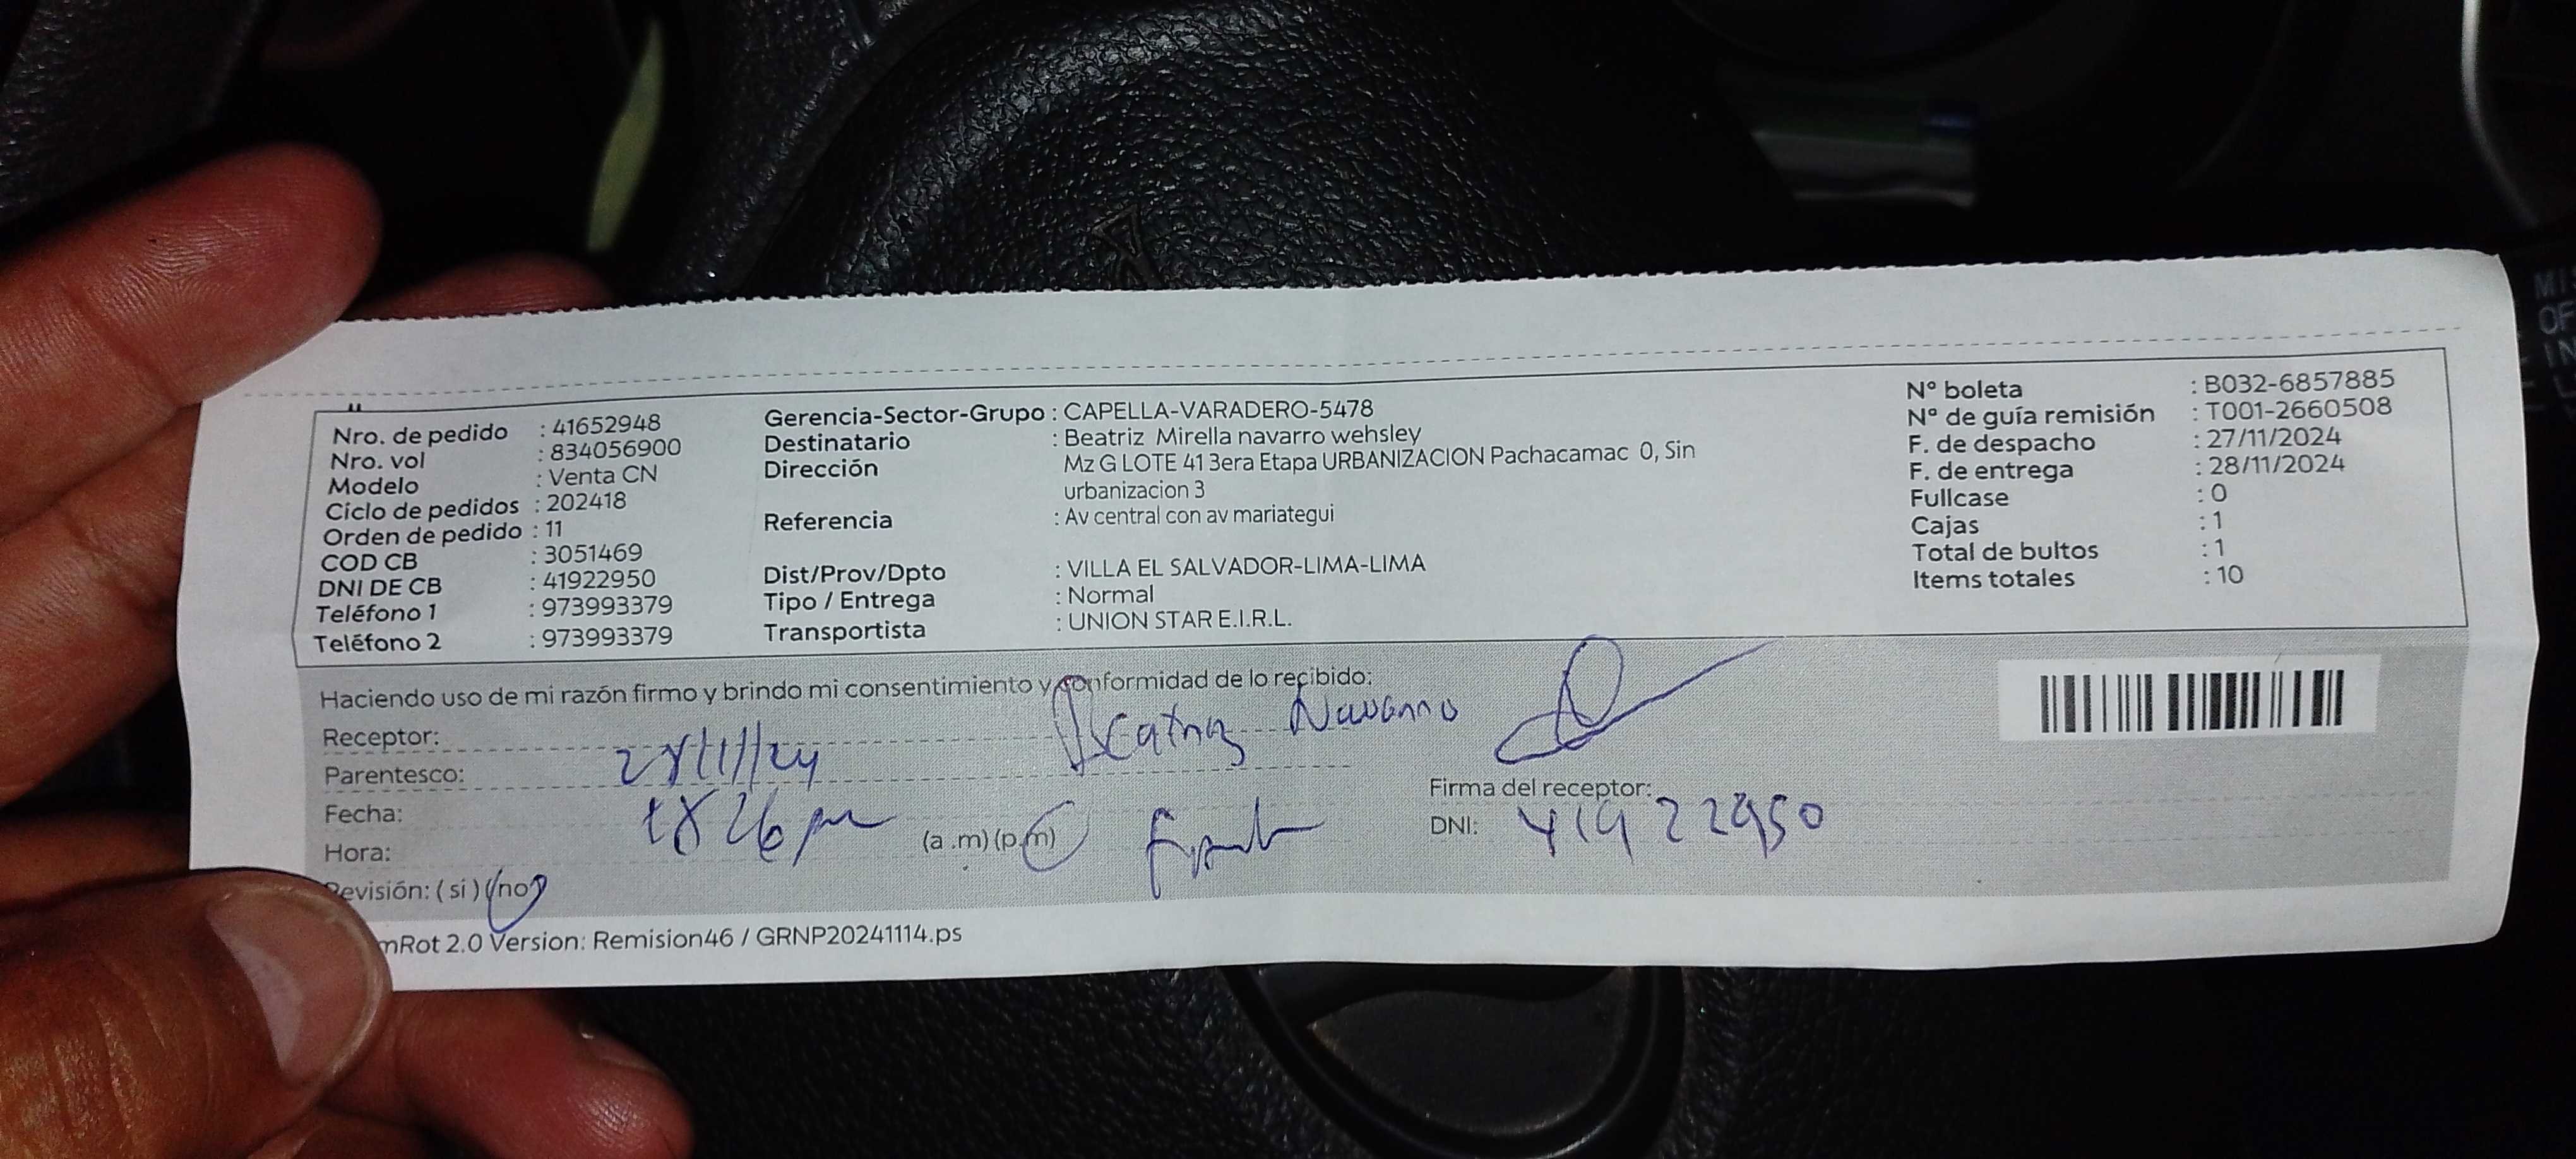 Nro. de pedido : 41652948
Nro. vol : 834056900
Modelo : Venta CN
Ciclo de pedidos : 202418
Orden de pedido : 11
COD CB : 3051469
DNI DE CB : 41922950
Teléfono 1 : 973993379
Teléfono 2 : 973993379
Gerencia-Sector-Grupo : CAPELLA-VARADERO-5478
Destinatario : Beatriz Mirella navarro wehsley
Dirección Mz G LOTE 41 3era Etapa URBANIZACION Pachacamac 0, Sin
urbanizacion 3
Referencia : Av central con av mariategui
Dist/Prov/Dpto : VILLA EL SALVADOR-LIMA-LIMA
Tipo / Entrega : Normal
Transportista : UNION STAR E.I.R.L.
N° boleta : B032-6857885
N° de guía remisión : T001-2660508
F. de despacho : 27/11/2024
F. de entrega : 28/11/2024
Fullcase : 0
Cajas : 1
Total de bultos : 1
Items totales : 10
Haciendo uso de mi razón firmo y brindo mi consentimiento y conformidad de lo recibido:
Receptor: Beatriz Navarro
Parentesco: 28/11/24
Fecha: 18 26 pm
Hora: (a .m) (p.m)
Firma del receptor:
DNI: 41922950
Revisión: ( si ) (no)
mRot 2.0 Version: Remision46 / GRNP20241114.ps